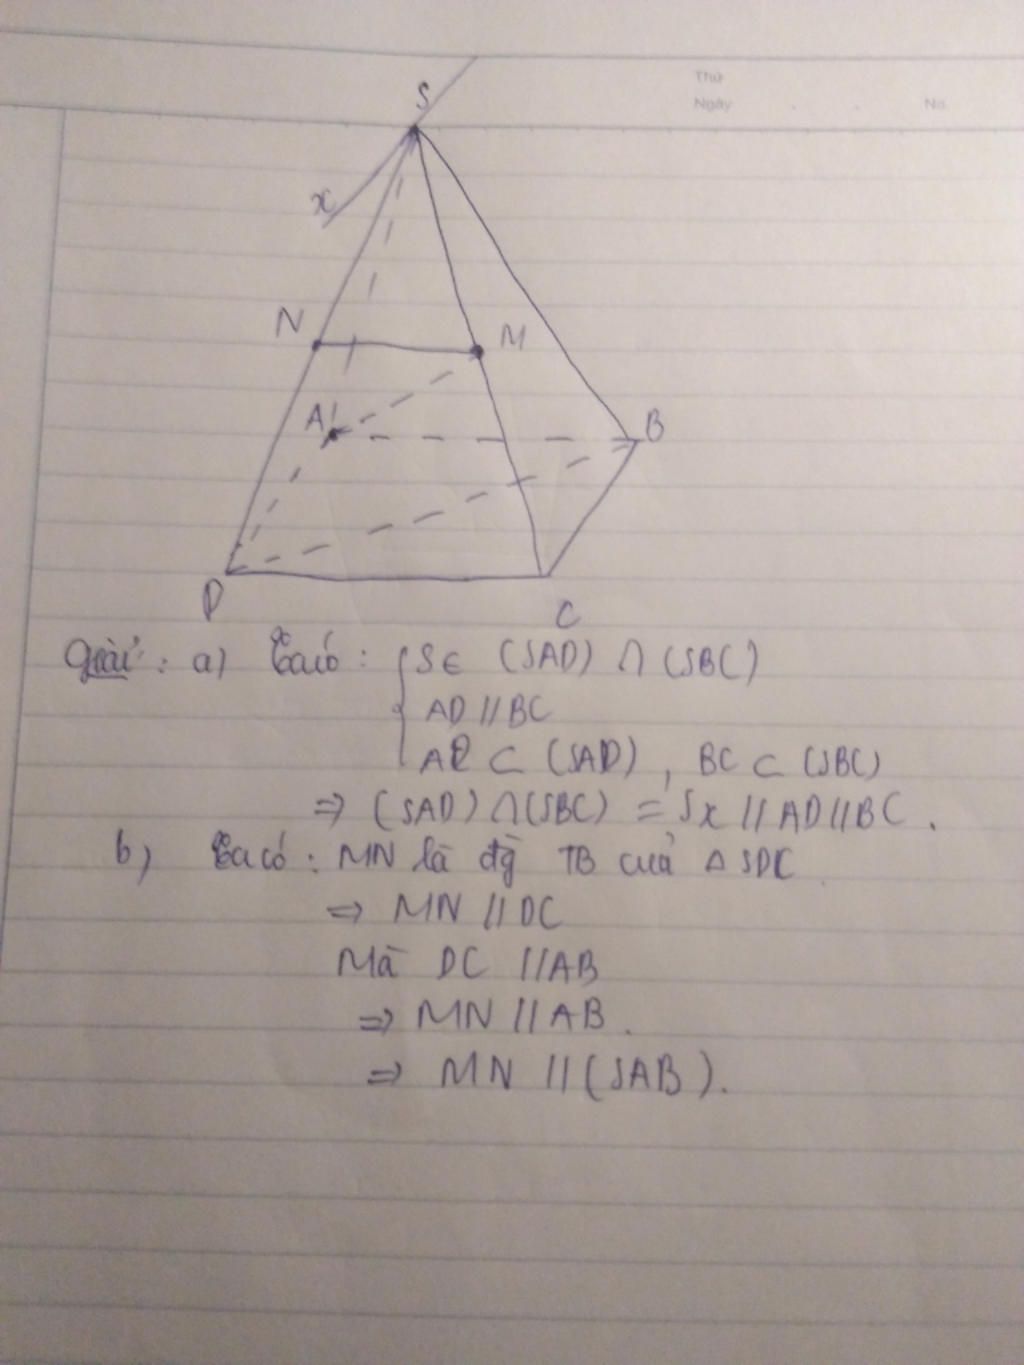 Thứ
Ngày . . No.
S
x
N
M
A
B
D
C
Giải: a) Ta có: { S ∈ (SAD) ∩ (SBC)
AD // BC
AD ⊂ (SAD), BC ⊂ (SBC)
⇒ (SAD) ∩ (SBC) = Sx // AD // BC.
b) Ta có: MN là đg TB của △ SDC
⇒ MN // DC
Mà DC // AB
⇒ MN // AB.
⇒ MN // (SAB).